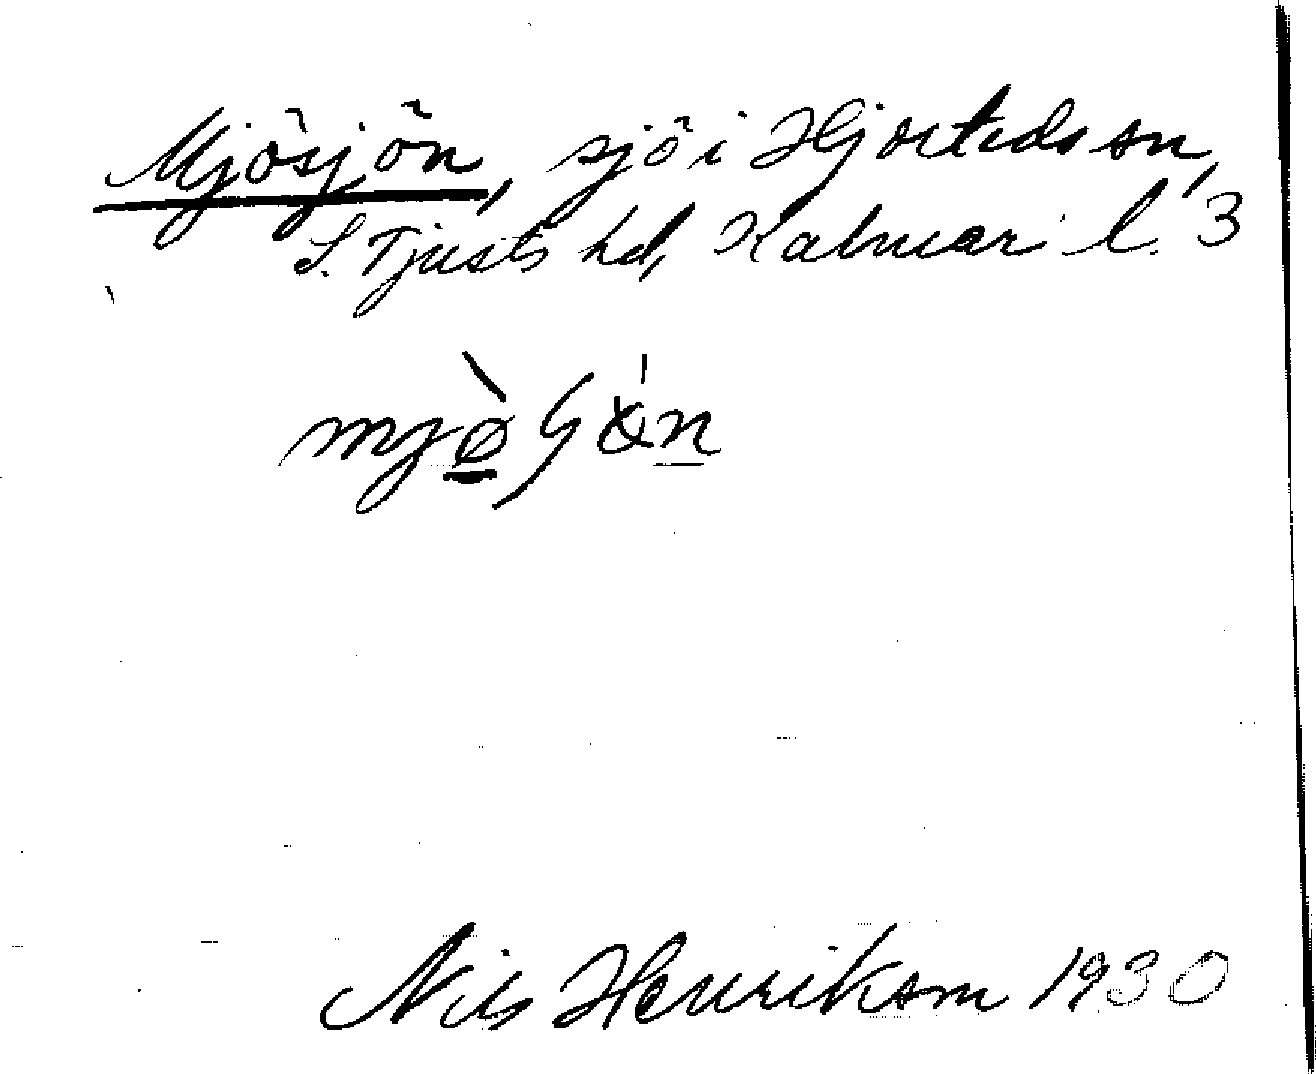 Mjösjön, sjö i Hjorteds sn,
S. Tjusts hd, Kalmar l. 3
Nils Henrikson 1930